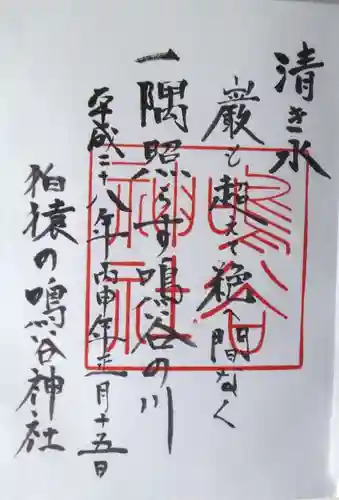 清き水
巌も超えて絶へ間なく
一隅照らす鳴谷の川
平成二十八年丙申年正月十五日
狛猿の鳴谷神社
鳴谷
神社